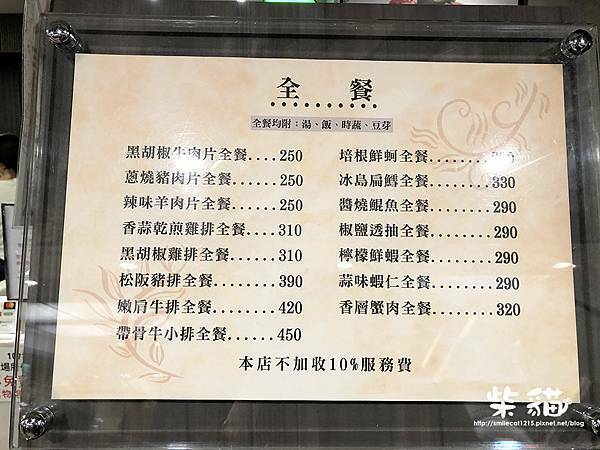 全 餐
全餐均附：湯、飯、時蔬、豆芽
黑胡椒牛肉片全餐....250
蔥燒豬肉片全餐.....250
辣味羊肉片全餐.....250
香蒜乾煎雞排全餐...310
黑胡椒雞排全餐.....310
松阪豬排全餐.......390
嫩肩牛排全餐.......420
帶骨牛小排全餐.....450
培根鮮蚵全餐
冰島扁鱈全餐.......330
醬燒鯤魚全餐.......290
椒鹽透抽全餐.......290
檸檬鮮蝦全餐.......290
蒜味蝦仁全餐.......290
香層蟹肉全餐.......320
本店不加收10%服務費
柴貓
http://smilecat1215.pixnet.net/blog